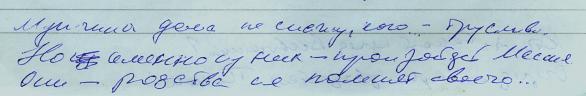 Мужчина дома не сижу, чего - труслив.
Но именно у них - произойдет Мессия
Они - родства не помнят своего...